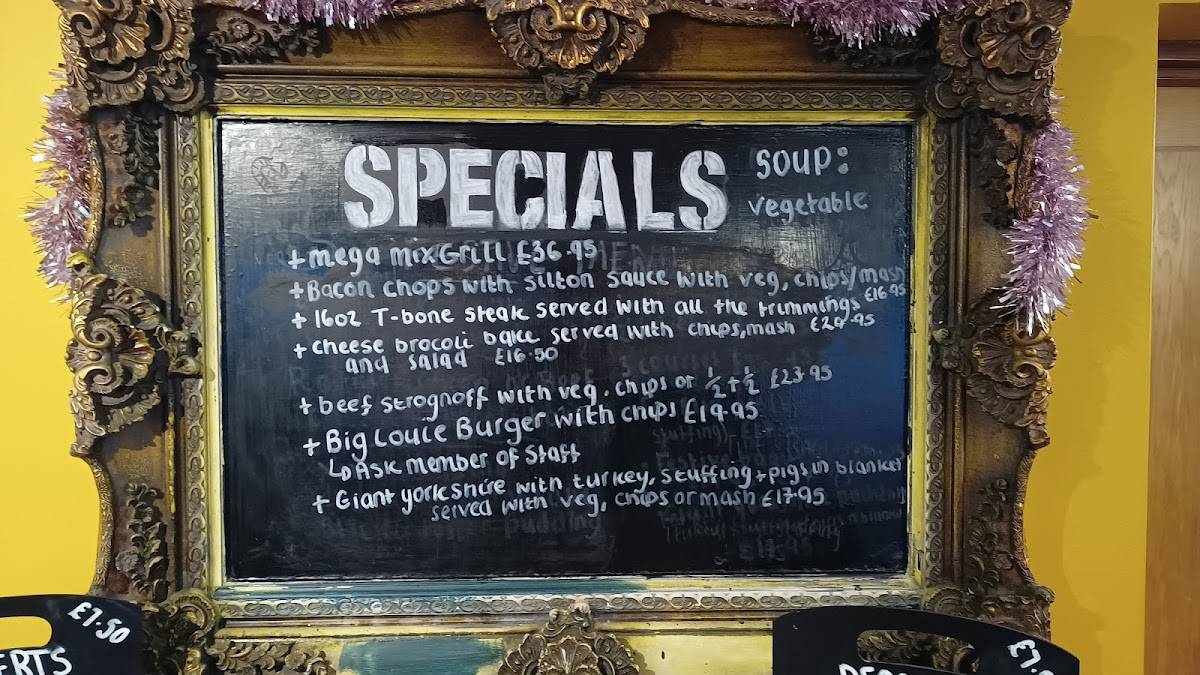 SPECIALS
SOUP:
vegetable
+ mega mix Grill £36.95
+ Bacon chops with silton sauce with veg, chips/mash
£16.95
+ 16oz T-bone steak served with all the trimmings
+ cheese brocoli bake served with chips, mash
and salad £16.50
+ beef strognoff with veg. chips or ½+½ £23.95
+ Big Louie Burger with chips £19.95
↳ Ask member of staff
+ Giant yorkshire with turkey, stuffing + pigs in blanket
served with veg, chips or mash £17.95
£7.50
ERTS